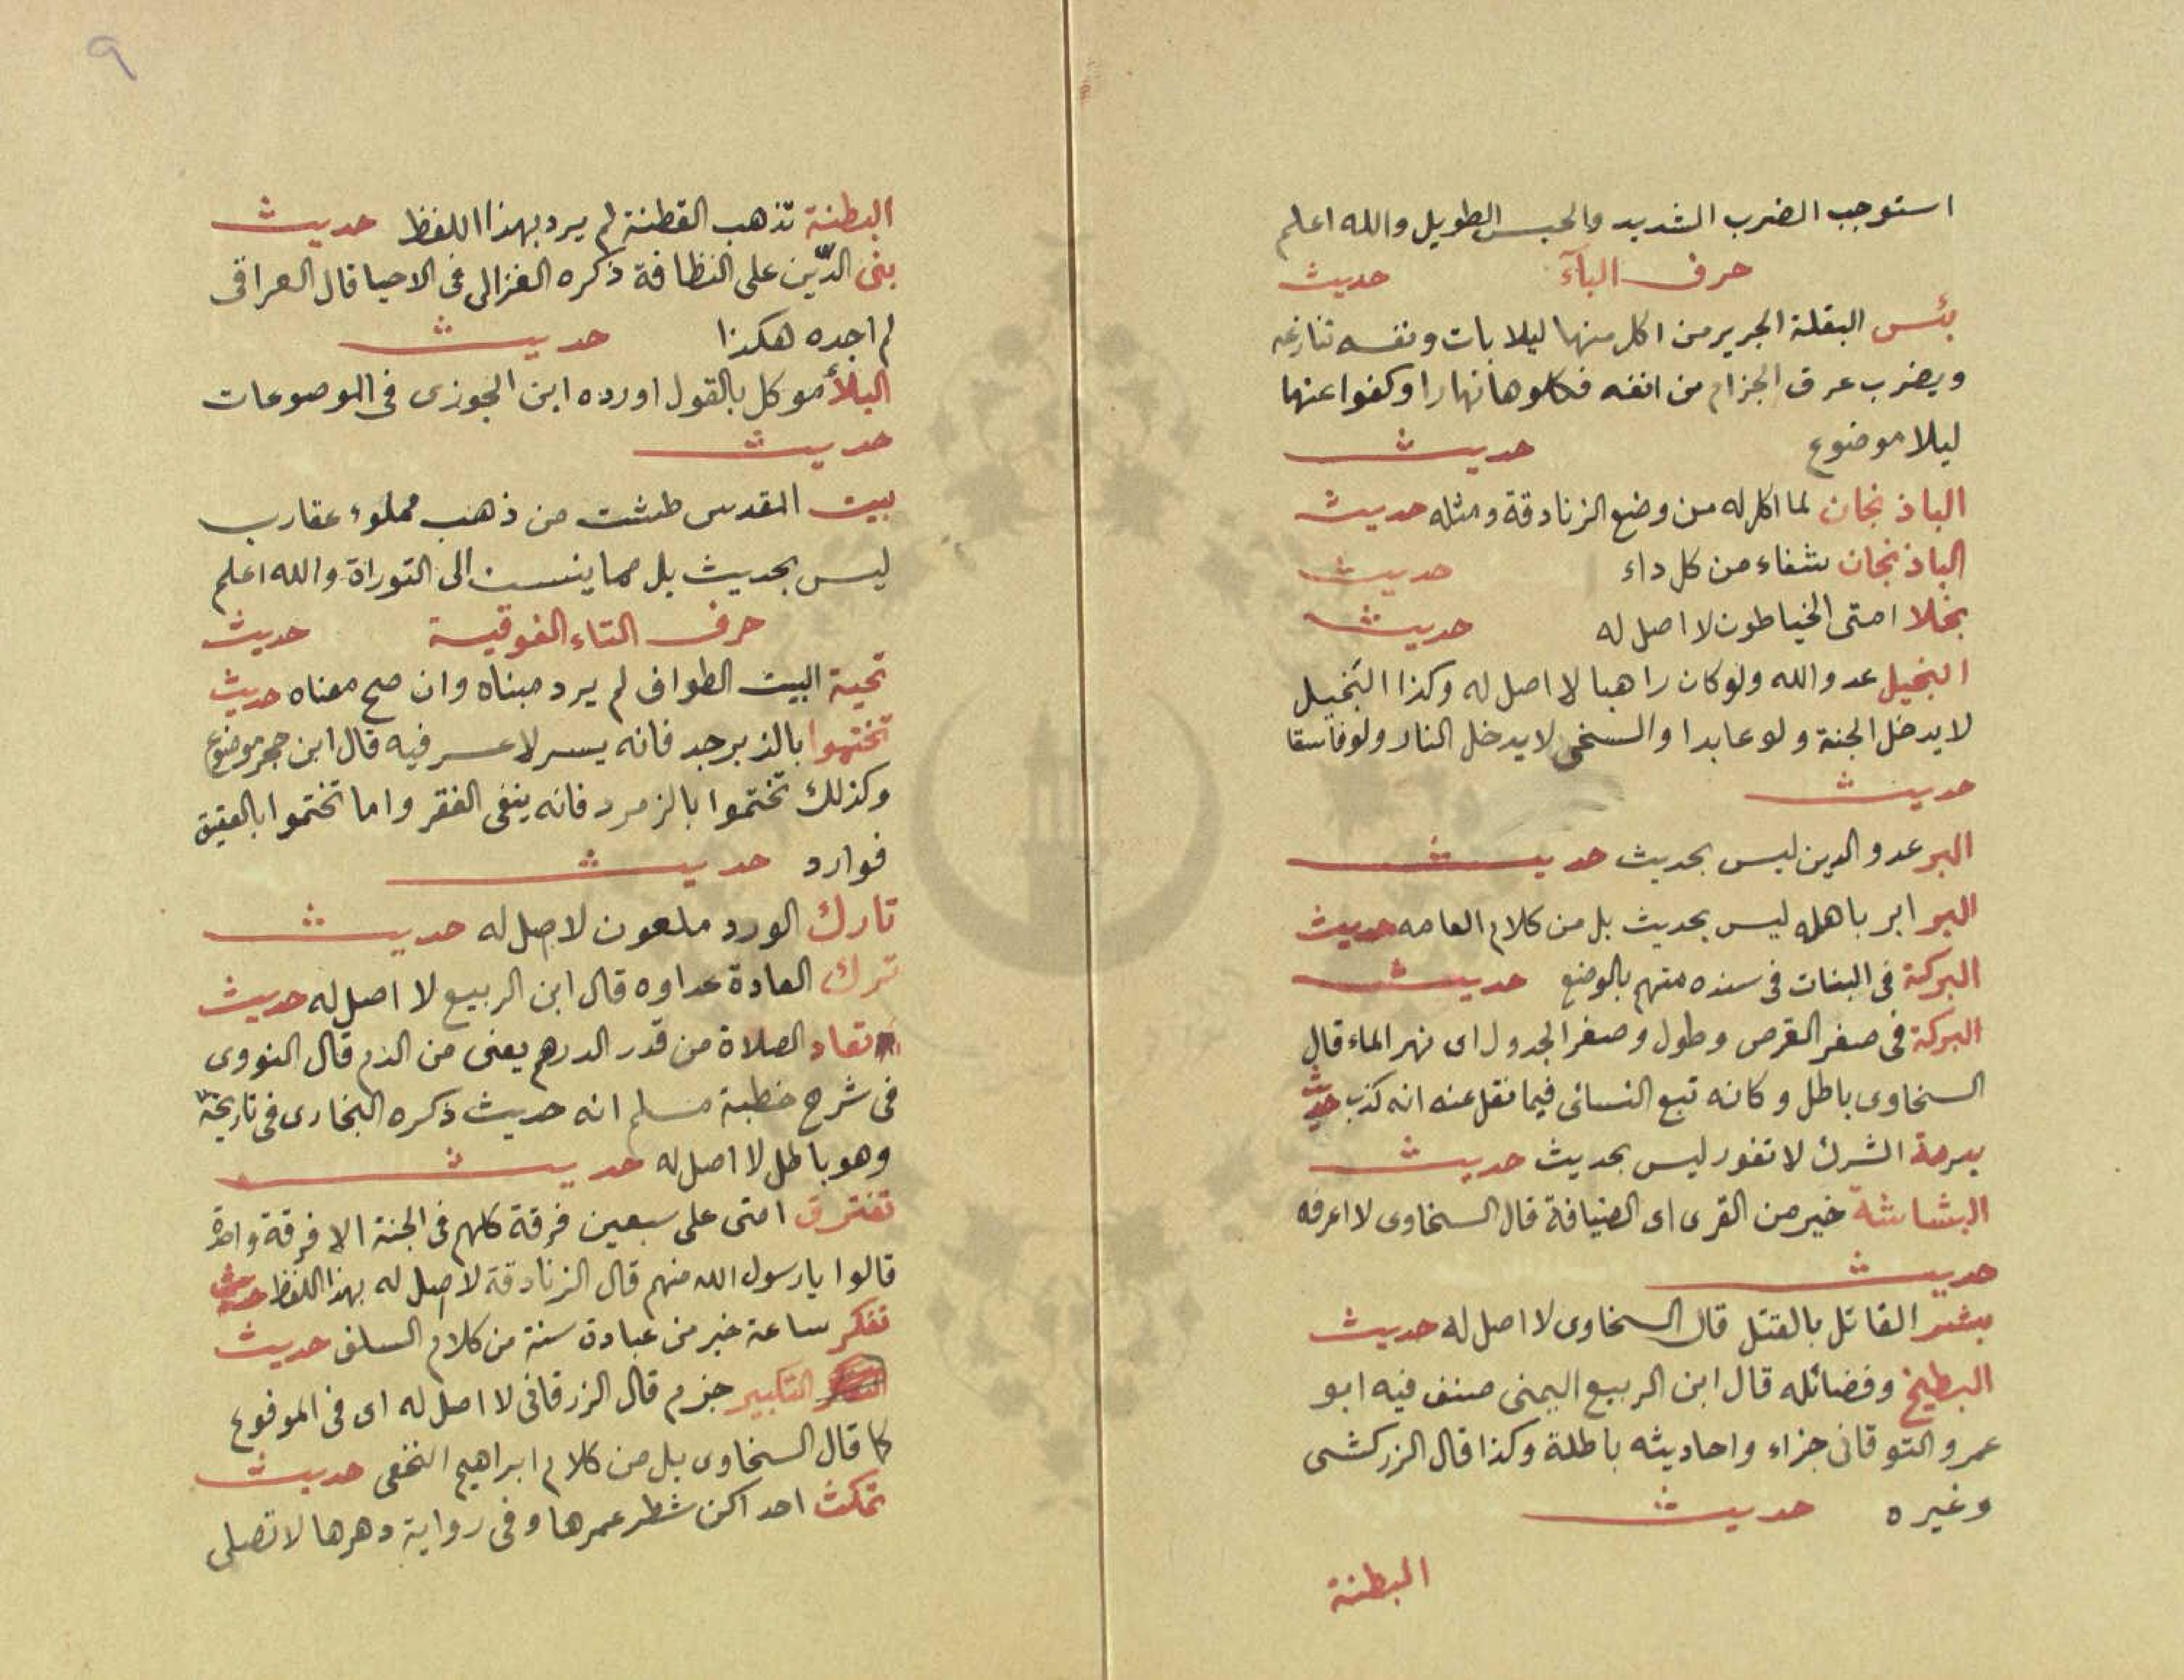 استوجب الضرب الشديد والحبس الطويل والله اعلم
حرف البآء حديث
بئس البقلة الجرير من اكل منها ليلا بات ونفسه تنازعه
ويضرب عرق الجزام من انفه فكلوها نهارا وكفوا عنها
ليلا موضوع حديث
الباذنجان لما اكل له من وضع الزنادقة ومثله حديث
الباذنجان شفاء من كل داء حديث
بخلا امتى الخياطون لا اصل له حديث
البخيل عدو الله ولو كان راهبا لا اصل له وكذا البخيل
لا يدخل الجنة ولو عابدا والسخى لا يدخل النار ولو فاسقا
حديث
البر عدو الدين ليس بحديث حديث
البر ابر باهله ليس بحديث بل من كلام العامه حديث
البركة فى البنات فى سنده متهم بالوضع حديث
البركة فى صغر القرص وطول وصغر الجدول اى نهر الماء قال
السخاوى باطل وكانه تبع النسائى فيما نقل عنه انه كذب حديث
برمة الشرك لا تفور ليس بحديث حديث
البشاشة خير من القرى اى الضيافة قال السخاوى لا اعرفه
حديث
بشر القاتل بالقتل قال السخاوى لا اصل له حديث
البطيخ وفضائله قال ابن الربيع اليمنى صنف فيه ابو
عمرو التوقانى جزاء واحاديثه باطلة وكذا قال الزركشى
وغيره حديث
البطنة
٩
البطنة تذهب الفطنة لم يرد بهذا اللفظ حديث
بنى الدّين على النظافة ذكره الغزالى فى الاحيا قال العراقى
لم اجده هكذا حديث
البلأ موكل بالقول اورده ابن الجوزى فى الموضوعات
حديث
بيت المقدس طشت من ذهب مملوء عقارب
ليس بحديث بل مما ينسب الى التوراة والله اعلم
حرف التاء الفوقية حديث
تحية البيت الطواف لم يرد مبناه وان صح معناه حديث
تختموا بالزبرجد فانه يسر لا عسر فيه قال ابن حجر موضوع
وكذلك تختموا بالزمرد فانه ينفى الفقر واما تختموا بالعقيق
فوارد حديث
تارك الورد ملعون لا اصل له حديث
ترك العادة عداوه قال ابن الربيع لا اصل له حديث
تعاد الصلاة من قدر الدرهم يعنى من الدم قال النووى
فى شرح خطبة مسلم انه حديث ذكره البخارى فى تاريخه
وهو باطل لا اصل له حديث
تفترق امتى على سبعين فرقة كلهم فى الجنة الا فرقة واحدة
قالوا يا رسول الله منهم قال الزنادقة لا اصل له بهذا اللفظ حديث
تفكر ساعة خير من عبادة سنة من كلام السلف حديث
التكبير جزم قال الزرقانى لا اصل له اى فى المرفوع
كما قال السخاوى بل من كلام ابراهيم النخعى حديث
تمكث احداكن شطر عمرها وفى رواية دهرها لا تصلى